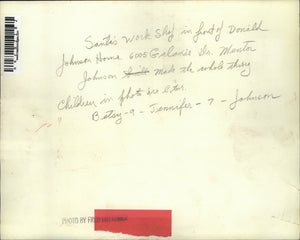 Santa's Work Shop in front of Donald
Johnson Home 6005 Dr. Mentor
Johnson built made the whole thing
Children in photo are
Betsy - 9 - Jennifer - 7 - Johnson
PHOTO BY FRED